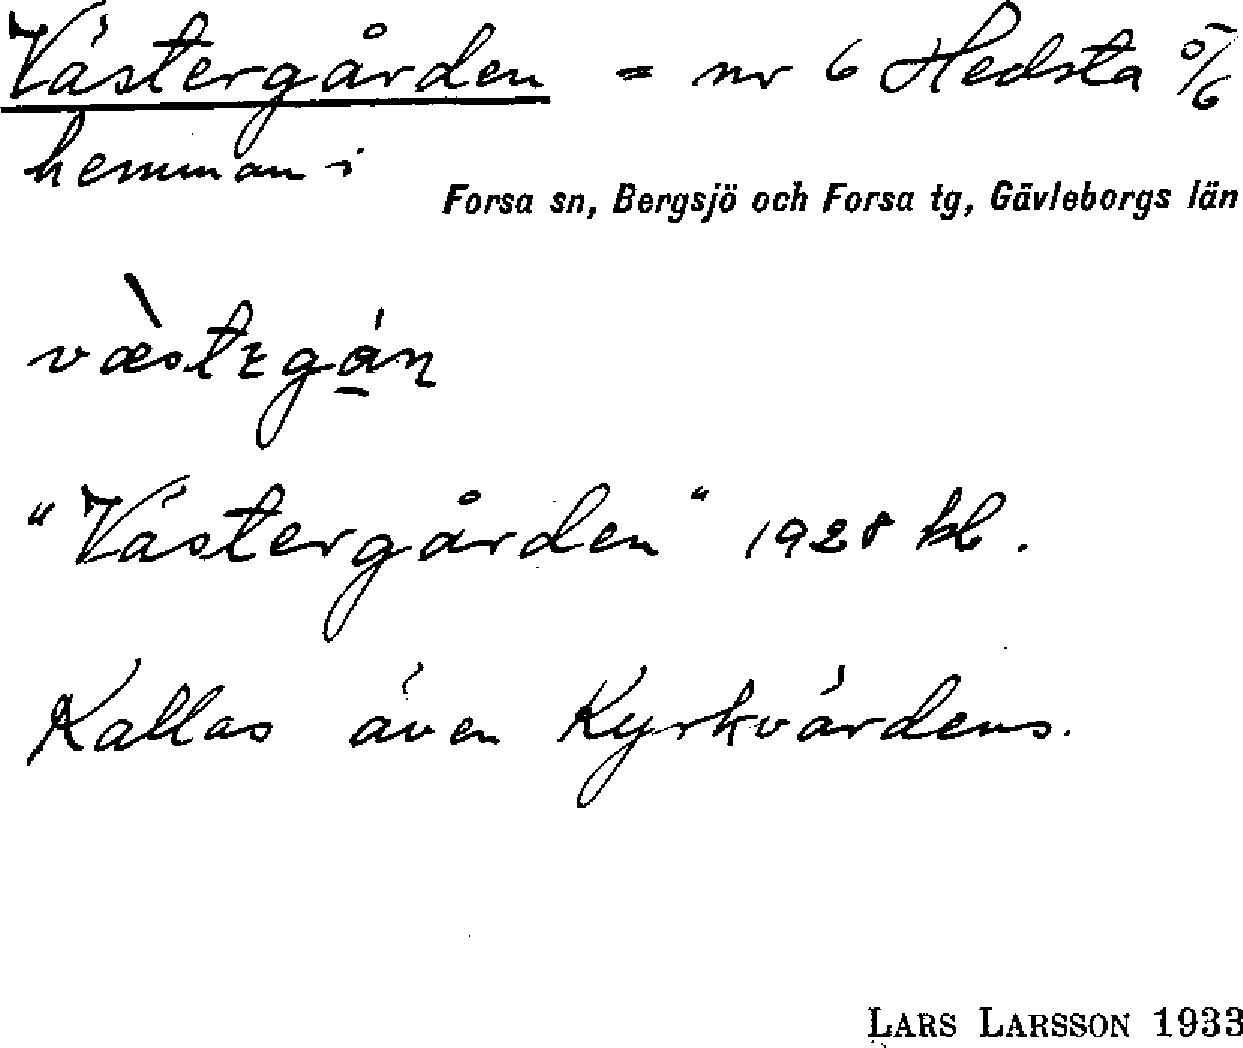 Västergården = nr 6 Hedsta %
hemman i
Forsa sn, Bergsjö och Forsa tg, Gävleborgs län
"Västergården" 1928 kl.
Kallas även Kyrkvärdens.
LARS LARSSON 1933